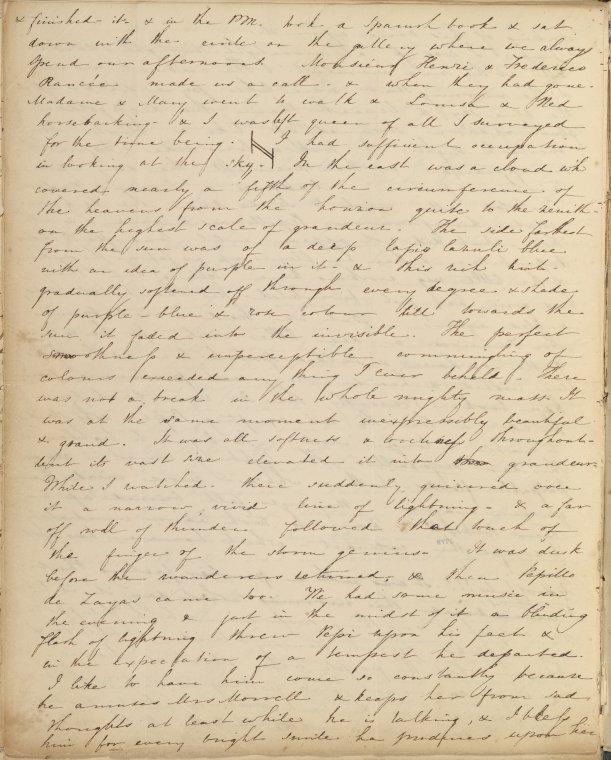 & finished it - & in the P.M. took a Spanish book & sat
down with the circle on the gallery where we always
spend our afternoons. Monsieur Henri & Frederico
Rancée made us a call - & when they had gone -
Madame & Mary went to walk & Louisa & Ned
horsebacking - & I was left queen of all I surveyed
for the time being. I had sufficient occupation
in looking at the sky. In the east was a cloud wh
covered nearly a fifth of the circumference of
the heavens from the horizon quite to the zenith -
on the highest scale of grandeur. The side farthest
from the sun was of a deep lapis lazuli blue
with an idea of purple in it - & this rich tint -
gradually softened off through every degree & shade
of purple - blue & rose colour till towards the
sun it faded into the invisible. The perfect
smoothness & imperceptible commingling of
colours exceeded any thing I ever beheld. There
was not a break in the whole mighty mass. It
was at the same moment inexpressibly beautiful
& grand. It was all softness & throughout -
but its vast size elevated it into grandeur.
While I watched - there suddenly quivered over
it a narrow vivid line of lightning - & a far
off roll of thunder followed that touch of
the finger of the storm genius - It was dusk
before the wanderers returned, & then Pepillo
de Zayas came too. We had some music in
the evening & just in the midst of it a blinding
flash of lightning threw Pepi upon his feet &
in the expectation of a tempest he departed.
I like to have him come so constantly because
he amuses Mrs Morrell & keeps her from sad
thoughts at least while he is talking, & I bless
him for every bright smile he produces upon her